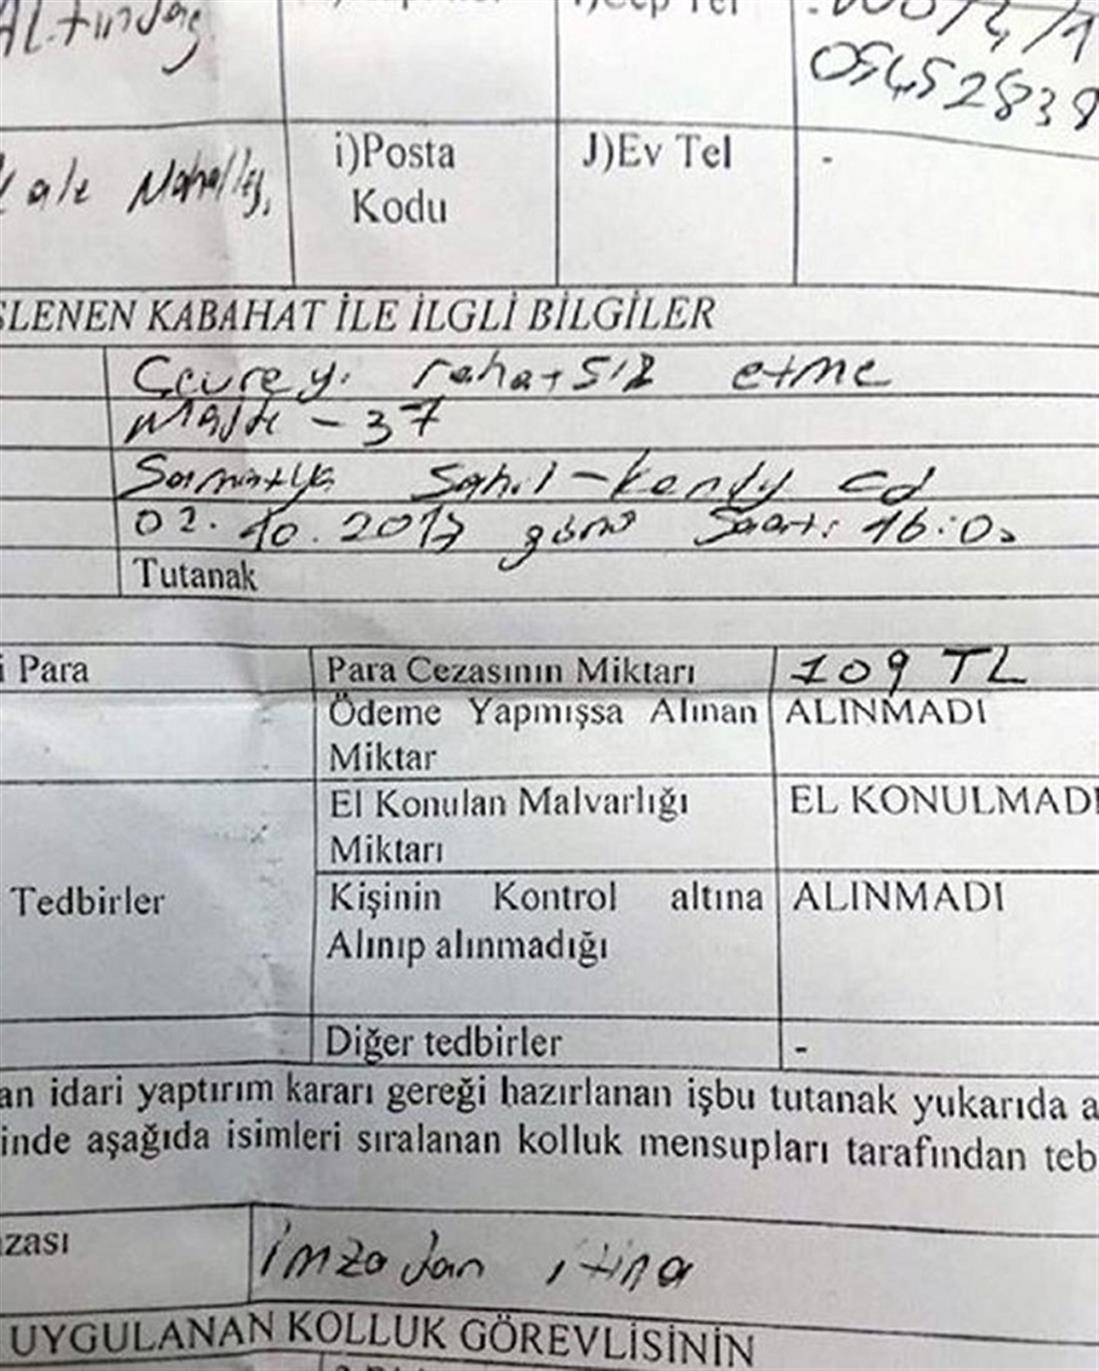 Altındağ
05452838
Kale Mahallesi,
i)Posta Kodu
J)Ev Tel
-
ŞLENEN KABAHAT İLE İLGLİ BİLGİLER
Çevreyi rahatsız etme
Madde - 37
Samatya Sahil - Kenedy cd
02.10.2017 günü Saat: 16:00
Tutanak
i Para
Para Cezasının Miktarı
109 TL
Ödeme Yapmışsa Alınan
Miktar
ALINMADI
El Konulan Malvarlığı
Miktarı
EL KONULMADI
Tedbirler
Kişinin Kontrol altına
Alınıp alınmadığı
ALINMADI
Diğer tedbirler
-
an idari yaptırım kararı gereği hazırlanan işbu tutanak yukarıda a
inde aşağıda isimleri sıralanan kolluk mensupları tarafından teb
zası
imzadan itina
UYGULANAN KOLLUK GÖREVLİSİNİN